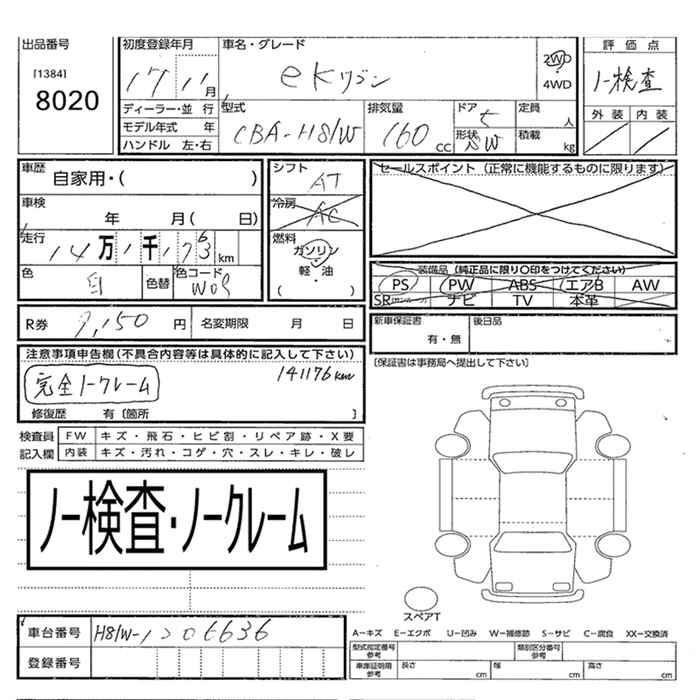 出品番号
[1384]
8020
初度登録年月
17 11月
車名・グレード
eKワゴン
2WD
4WD
評価点
ノー検査
外装 内装
ディーラー・並行
モデル年式 年
ハンドル 左・右
型式
CBA-H81W
排気量
660 CC
ドア
形状
定員 人
積載 kg
車歴
自家用・( )
車検
年 月( 日)
走行
14万1千176km
色
白
色替
色コード
W09
シフト
AT
冷房
AC
燃料
ガソリン
軽・油
( )
セールスポイント (正常に機能するものに限ります)
装備品 (純正品に限り○印をつけてください)
PS PW ABS エアB AW
SR(サンルーフ) ナビ TV 本革
R券 9,150 円 名変期限 月 日
新車保証書
有・無
後日品
[保証書は事務局へ提出して下さい]
注意事項申告欄(不具合内容等は具体的に記入して下さい)
141176km
完全ノークレーム
修復歴 有 [箇所 ]
検査員 FW キズ・飛石・ヒビ割・リペア跡・X要
記入欄 内装 キズ・汚れ・コゲ・穴・スレ・キレ・破レ
ノー検査・ノークレーム
スペアT
車台番号 H81W-1206636
登録番号
A-キズ E-エクボ U-凹み W-補修跡 S-サビ C-腐食 XX-交換済
型式指定番号
参考
類別区分番号
参考
車庫証明用
参考
長さ cm 幅 cm 高さ cm